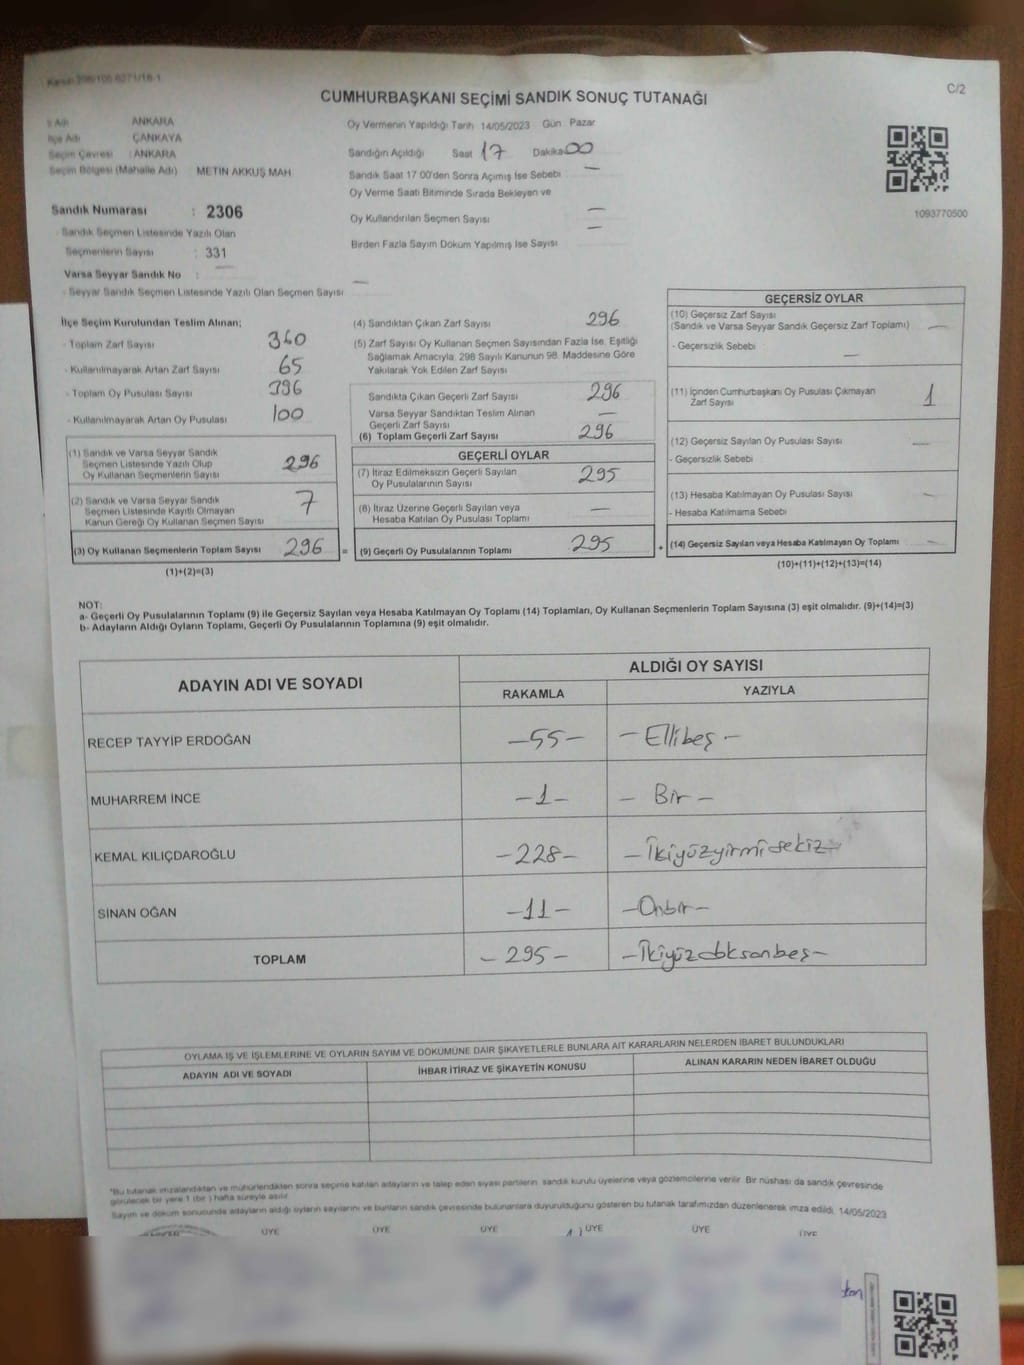 CUMHURBAŞKANI SEÇİMİ SANDIK SONUÇ TUTANAĞI
C/2
İl Adı ANKARA
İlçe Adı ÇANKAYA
Seçim Çevresi : ANKARA
Seçim Bölgesi (Mahalle Adı) METİN AKKUŞ MAH
Sandık Numarası : 2306
Sandık Seçmen Listesinde Yazılı Olan
Seçmenlerin Sayısı : 331
Varsa Seyyar Sandık No : —
- Seyyar Sandık Seçmen Listesinde Yazılı Olan Seçmen Sayısı —
Oy Vermenin Yapıldığı Tarih 14/05/2023 Gün Pazar
Sandığın Açıldığı Saat 17 Dakika 00
Sandık Saat 17 00'den Sonra Açımış İse Sebebi —
Oy Verme Saati Bitiminde Sırada Bekleyen ve
Oy Kullandırılan Seçmen Sayısı —
Birden Fazla Sayım Döküm Yapılmış İse Sayısı —
1093770500
İlçe Seçim Kurulundan Teslim Alınan;
- Toplam Zarf Sayısı 360
- Kullanılmayarak Artan Zarf Sayısı 65
- Toplam Oy Pusulası Sayısı 396
- Kullanılmayarak Artan Oy Pusulası 100
(1) Sandık ve Varsa Seyyar Sandık
Seçmen Listesinde Yazılı Olup
Oy Kullanan Seçmenlerin Sayısı 296
(2) Sandık ve Varsa Seyyar Sandık
Seçmen Listesinde Kayıtlı Olmayan
Kanun Gereği Oy Kullanan Seçmen Sayısı 7
(3) Oy Kullanan Seçmenlerin Toplam Sayısı 296 =
(1)+(2)=(3)
(4) Sandıktan Çıkan Zarf Sayısı 296
(5) Zarf Sayısı Oy Kullanan Seçmen Sayısından Fazla İse, Eşitliği
Sağlamak Amacıyla, 298 Sayılı Kanunun 98. Maddesine Göre
Yakılarak Yok Edilen Zarf Sayısı
Sandıkta Çıkan Geçerli Zarf Sayısı 296
Varsa Seyyar Sandıktan Teslim Alınan
Geçerli Zarf Sayısı —
(6) Toplam Geçerli Zarf Sayısı 296
GEÇERLİ OYLAR
(7) İtiraz Edilmeksizin Geçerli Sayılan
Oy Pusulalarının Sayısı 295
(8) İtiraz Üzerine Geçerli Sayılan veya
Hesaba Katılan Oy Pusulası Toplamı —
(9) Geçerli Oy Pusulalarının Toplamı 295 +
GEÇERSİZ OYLAR
(10) Geçersiz Zarf Sayısı
(Sandık ve Varsa Seyyar Sandık Geçersiz Zarf Toplamı) —
- Geçersizlik Sebebi —
(11) İçinden Cumhurbaşkanı Oy Pusulası Çıkmayan
Zarf Sayısı 1
(12) Geçersiz Sayılan Oy Pusulası Sayısı —
- Geçersizlik Sebebi
(13) Hesaba Katılmayan Oy Pusulası Sayısı —
- Hesaba Katılmama Sebebi
(14) Geçersiz Sayılan veya Hesaba Katılmayan Oy Toplamı —
(10)+(11)+(12)+(13)=(14)
NOT:
a- Geçerli Oy Pusulalarının Toplamı (9) ile Geçersiz Sayılan veya Hesaba Katılmayan Oy Toplamı (14) Toplamları, Oy Kullanan Seçmenlerin Toplam Sayısına (3) eşit olmalıdır. (9)+(14)=(3)
b- Adayların Aldığı Oyların Toplamı, Geçerli Oy Pusulalarının Toplamına (9) eşit olmalıdır.
ADAYIN ADI VE SOYADI
ALDIĞI OY SAYISI
RAKAMLA YAZIYLA
RECEP TAYYİP ERDOĞAN —55— —Ellibeş—
MUHARREM İNCE —1— — Bir —
KEMAL KILIÇDAROĞLU —228— —İkiyüzyirmisekiz—
SİNAN OĞAN —11— —Onbir—
TOPLAM —295— —İkiyüzdoksanbeş—
OYLAMA İŞ VE İŞLEMLERİNE VE OYLARIN SAYIM VE DÖKÜMÜNE DAİR ŞİKAYETLERLE BUNLARA AİT KARARLARIN NELERDEN İBARET BULUNDUKLARI
ADAYIN ADI VE SOYADI İHBAR İTİRAZ VE ŞİKAYETİN KONUSU ALINAN KARARIN NEDEN İBARET OLDUĞU
*Bu tutanak imzalandıktan ve mühürlendikten sonra seçime katılan adayların ve talep eden siyasi partilerin, sandık kurulu üyelerine veya gözlemcilerine verilir. Bir nüshası da sandık çevresinde
görülecek bir yere 1 (bir ) hafta süreyle asılır.
Sayım ve döküm sonucunda adayların aldığı oyların sayılarını ve bunların sandık çevresinde bulunanlara duyurulduğunu gösteren bu tutanak tarafımızdan düzenlenerek imza edildi. 14/05/2023
ÜYE ÜYE ÜYE ÜYE ÜYE ÜYE